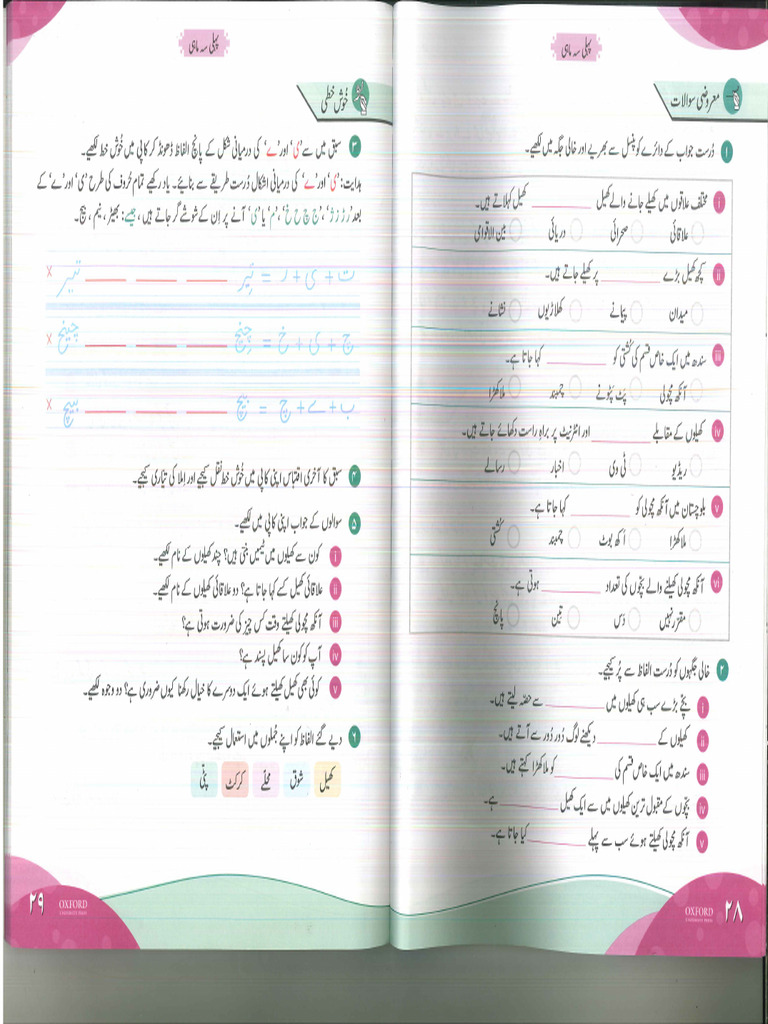 پہلی سہ ماہی
معروضی سوالات
۱ دُرست جواب کے دائرے کو پنسل سے بھریے اور خالی جگہ میں لکھیے۔
i مختلف علاقوں میں کھیلے جانے والے کھیل ________ کھیل کہلاتے ہیں۔
علاقائی صحرائی دریائی بین الاقوامی
ii کچھ کھیل بڑے ________ پر کھیلے جاتے ہیں۔
میدان پیمانے کھلاڑیوں نشانے
iii سندھ میں ایک خاص قسم کی کُشتی کو ________ کہا جاتا ہے۔
آنکھ مچولی پٹ پٹونے چمبند ملاکھڑا
iv کھیلوں کے مقابلے ________ اور انٹرنیٹ پر براہِ راست دکھائے جاتے ہیں۔
ریڈیو ٹی وی اخبار رسالے
v بلوچستان میں آنکھ مچولی کو ________ کہا جاتا ہے۔
ملاکھڑا اُکھ بوٹ چمبند کُشتی
vi آنکھ مچولی کھیلنے والے بچّوں کی تعداد ________ ہوتی ہے۔
مقرّر نہیں دَس تین پانچ
۲ خالی جگہوں کو دُرست الفاظ سے پُر کیجیے۔
i بچّے بڑے سب ہی کھیلوں میں ________ سے حصّہ لیتے ہیں۔
ii کھیلوں کے ________ دیکھنے لوگ دُور دُور سے آتے ہیں۔
iii سندھ میں ایک خاص قسم کی ________ کو ملاکھڑا کہتے ہیں۔
iv بچّوں کے مقبول ترین کھیلوں میں سے ایک کھیل ________ ہے۔
v آنکھ مچولی کھیلتے ہوئے سب سے پہلے ________ کیا جاتا ہے۔
OXFORD
UNIVERSITY PRESS
۲۸
پہلی سہ ماہی
خُوش خطی
۳ سبق میں سے 'ی' اور 'ے' کی درمیانی شکل کے پانچ الفاظ ڈھونڈ کر کاپی میں خُوش خط لکھیے۔
ہدایت: 'ی' اور 'ے' کی درمیانی اشکال دُرست طریقے سے بنائیے۔ یاد رکھیے تمام حُروف کی طرح 'ی' اور 'ے' کے
بعد 'ر ڑ ز ژ'، 'ج چ ح خ'، 'م' یا 'ی' آنے پر اِن کے شوشے گر جاتے ہیں، جیسے: بھیڑ، نیم، بیج۔
ت + ی + ر = تیر ___ ___ ___ تییر ×
چ + ی + خ = چیخ ___ ___ ___ چییخ ×
ب + ے + چ = بیچ ___ ___ ___ بییچ ×
۴ سبق کا آخری اقتباس اپنی کاپی میں خُوش خط نقل کیجیے اور اِملا کی تیّاری کیجیے۔
۵ سوالوں کے جواب اپنی کاپی میں لکھیے۔
i کون سے کھیلوں میں ٹیمیں بنتی ہیں؟ چند کھیلوں کے نام لکھیے۔
ii علاقائی کھیل کسے کہا جاتا ہے؟ دو علاقائی کھیلوں کے نام لکھیے۔
iii آنکھ مچولی کھیلتے وقت کس چیز کی ضرورت ہوتی ہے؟
iv آپ کو کون سا کھیل پسند ہے؟
v کوئی بھی کھیل کھیلتے ہوئے ایک دوسرے کا خیال رکھنا کیوں ضروری ہے؟ دو وجوہ لکھیے۔
۶ دیے گئے الفاظ کو اپنے جُملوں میں استعمال کیجیے۔
کھیل شوق محلّے کرکٹ پٹّی
OXFORD
UNIVERSITY PRESS
۲۹